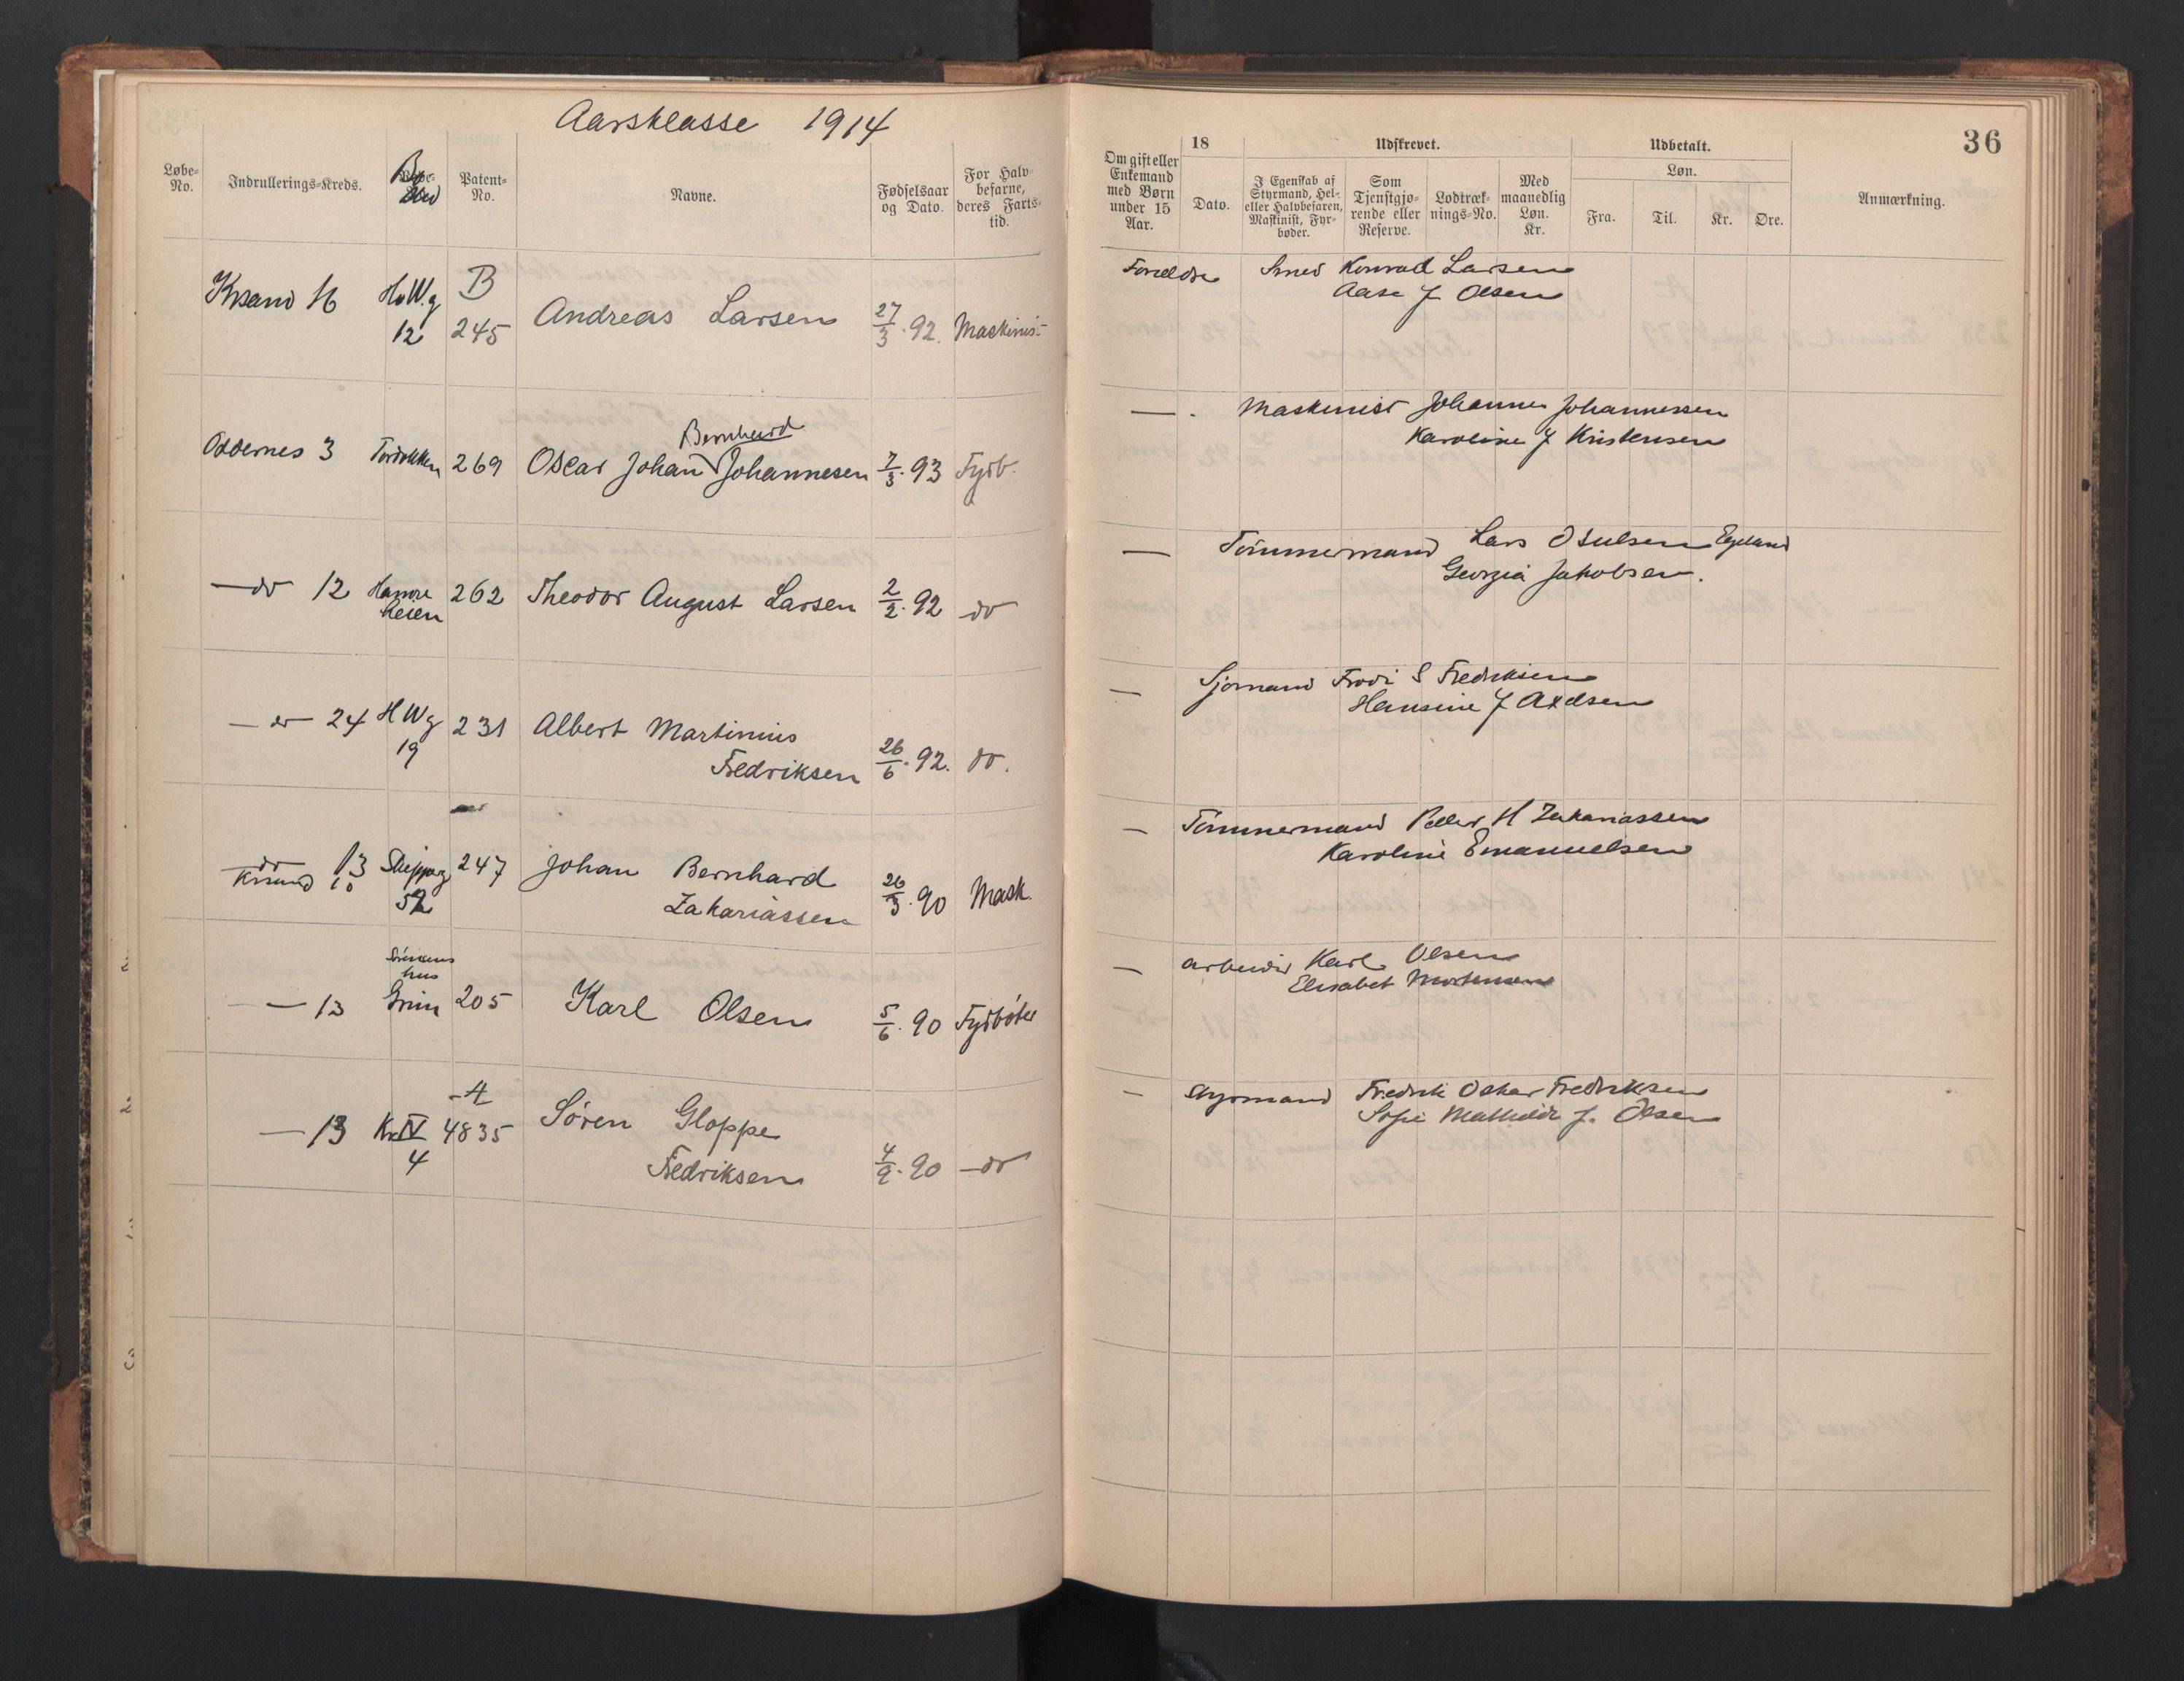 Aarsklasse 1914
36
Løbe-No.
Indrullerings-Kreds.
Patent-No.
Navne.
Fødselsaar og Dato.
For Halvbefarne, deres Farts-tid.
Om gift eller Enkemand med Børn under 15 Aar.
18
Dato.
Udskrevet.
I Egenskab af Styrmand, Hel- eller Halvbefaren, Maskinist, Fyrbøder.
Som Tjenstgjørende eller Reserve.
Lodtræknings-No.
Med maanedlig Løn. Kr.
Udbetalt.
Løn.
Fra.
Til.
Kr.
Øre.
Anmærkning.
B
245 Andreas Larsen 27/3.92. Maskinist
Forældre Smed Konrad Larsen
Aase J Olsen
Bernhard
Oddernes 3 269 Oscar Johan Johannesen 7/3.93 Fyrb.
— Maskinist Johannes Johannessen
Karoline J Kristensen
— do 12 262 Theodor August Larsen 2/2.92 do
— Tömmermand Lars Osulsen Egeland
Georgia Jakobsen.
24 H W g 231 Albert Martinius
19 Fredriksen 26/6.92. do.
— Sjömand S Fredriksen
Hansine J Axelsen
do 13 247 Johan Bernhard
Krsand 10 52 Zakariassen 26/3.90 Mask.
— Tömmermand Peder H Zakariassen
Karoline Emanuelsen
hus
— 13 Grim 205 Karl Olsen 5/6.90 Fyrböter
— arbeider Karl Olsen
Elisabet Mortensen
A
— 13 Kr IV 4835 Sören Gloppe
4 Fredriksen 4/9.90 — do
— Styrmand Fredrik Oskar Fredriksen
Sofie Mathilde J. Olsen